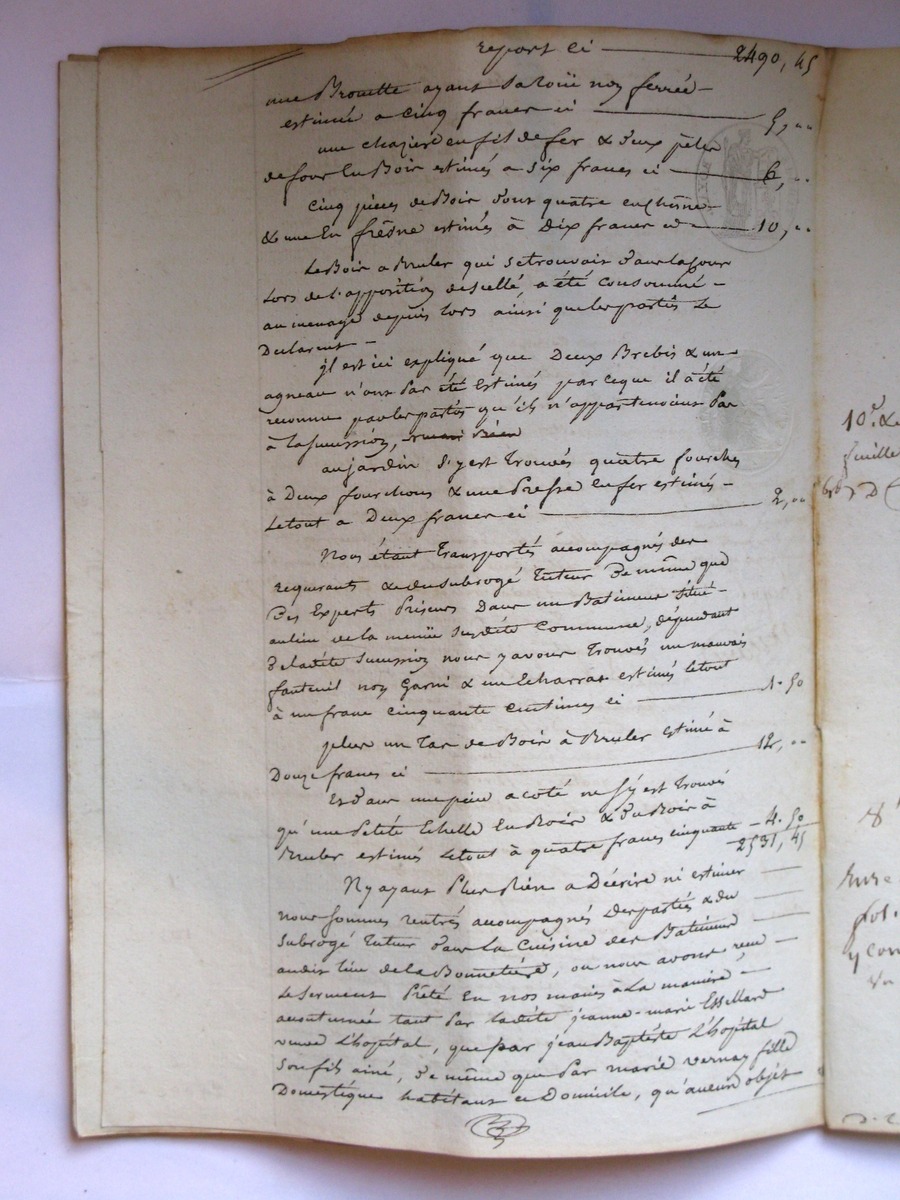 report ci — 2490, 45
une Brouette ayant sa roüe non ferrée —
estimée a cinq francs ci — 5, ..
une chaziere en fil de fer & deux pelles
de four En Bois estimés a six francs ci — 6, ..
Cinq pieces de Bois dont quatre en chêne
& une En frêne estimés à Dix francs ci — 10, ..
Le Bois a Bruler qui se trouvoit dans la Cour
Lors de l'apposition de scellé a été Consommé —
au menage depuis lors ainsi que les partis Le
Declarent —
il est ici expliqué que Deux Brebis & un
agneau n'ont Pas été Estimés par ce que il a été
reconnu par les partis qu'ils n'appartenoient Pas
à la succession,
au jardin s'y est Trouvés quatre fourches
à Deux fourchons & une Presse En fer estimés —
Le tout a Deux francs ci — 2, ..
Nous étant Transportés accompagnés des
requerants & du subrogé Tuteur De même que
Des Experts Priseurs Dans un Batiment situé —
au lieu de la susdite Commune, dépendant
de ladite succession nous y avons Trouvés un mauvais
fauteuil non Garni & un Echarrat estimés Le tout
à un franc cinquante Centimes ci — 1. 50
plus un Tas de Bois à Bruler estimé à
Douze francs ci — 12, ..
Et dans une piece a coté ne s'y est Trouvés
qu'une Petite Echelle En Bois & du Bois à
Bruler estimés Le tout à quatre francs cinquante — 4. 50
2531, 45
N'y ayant Plus Rien a Décrire ni estimer
nous sommes rentrés accompagnés Des partis & du
subrogé Tuteur dans La Cuisine des Batiments
audit lieu de la Bonnetiére, ou nous avons reçu —
Le serment Prêté En nos mains à La maniére —
accoutumée tant Par ladite jeanne-marie Essellard
veuve L'hopital, que par jean Baptiste L'hopital
son fils ainé, de même que Par marie vernay fille
Domestique habitant ce Domicile, qu'aucun objet
10.
feuille